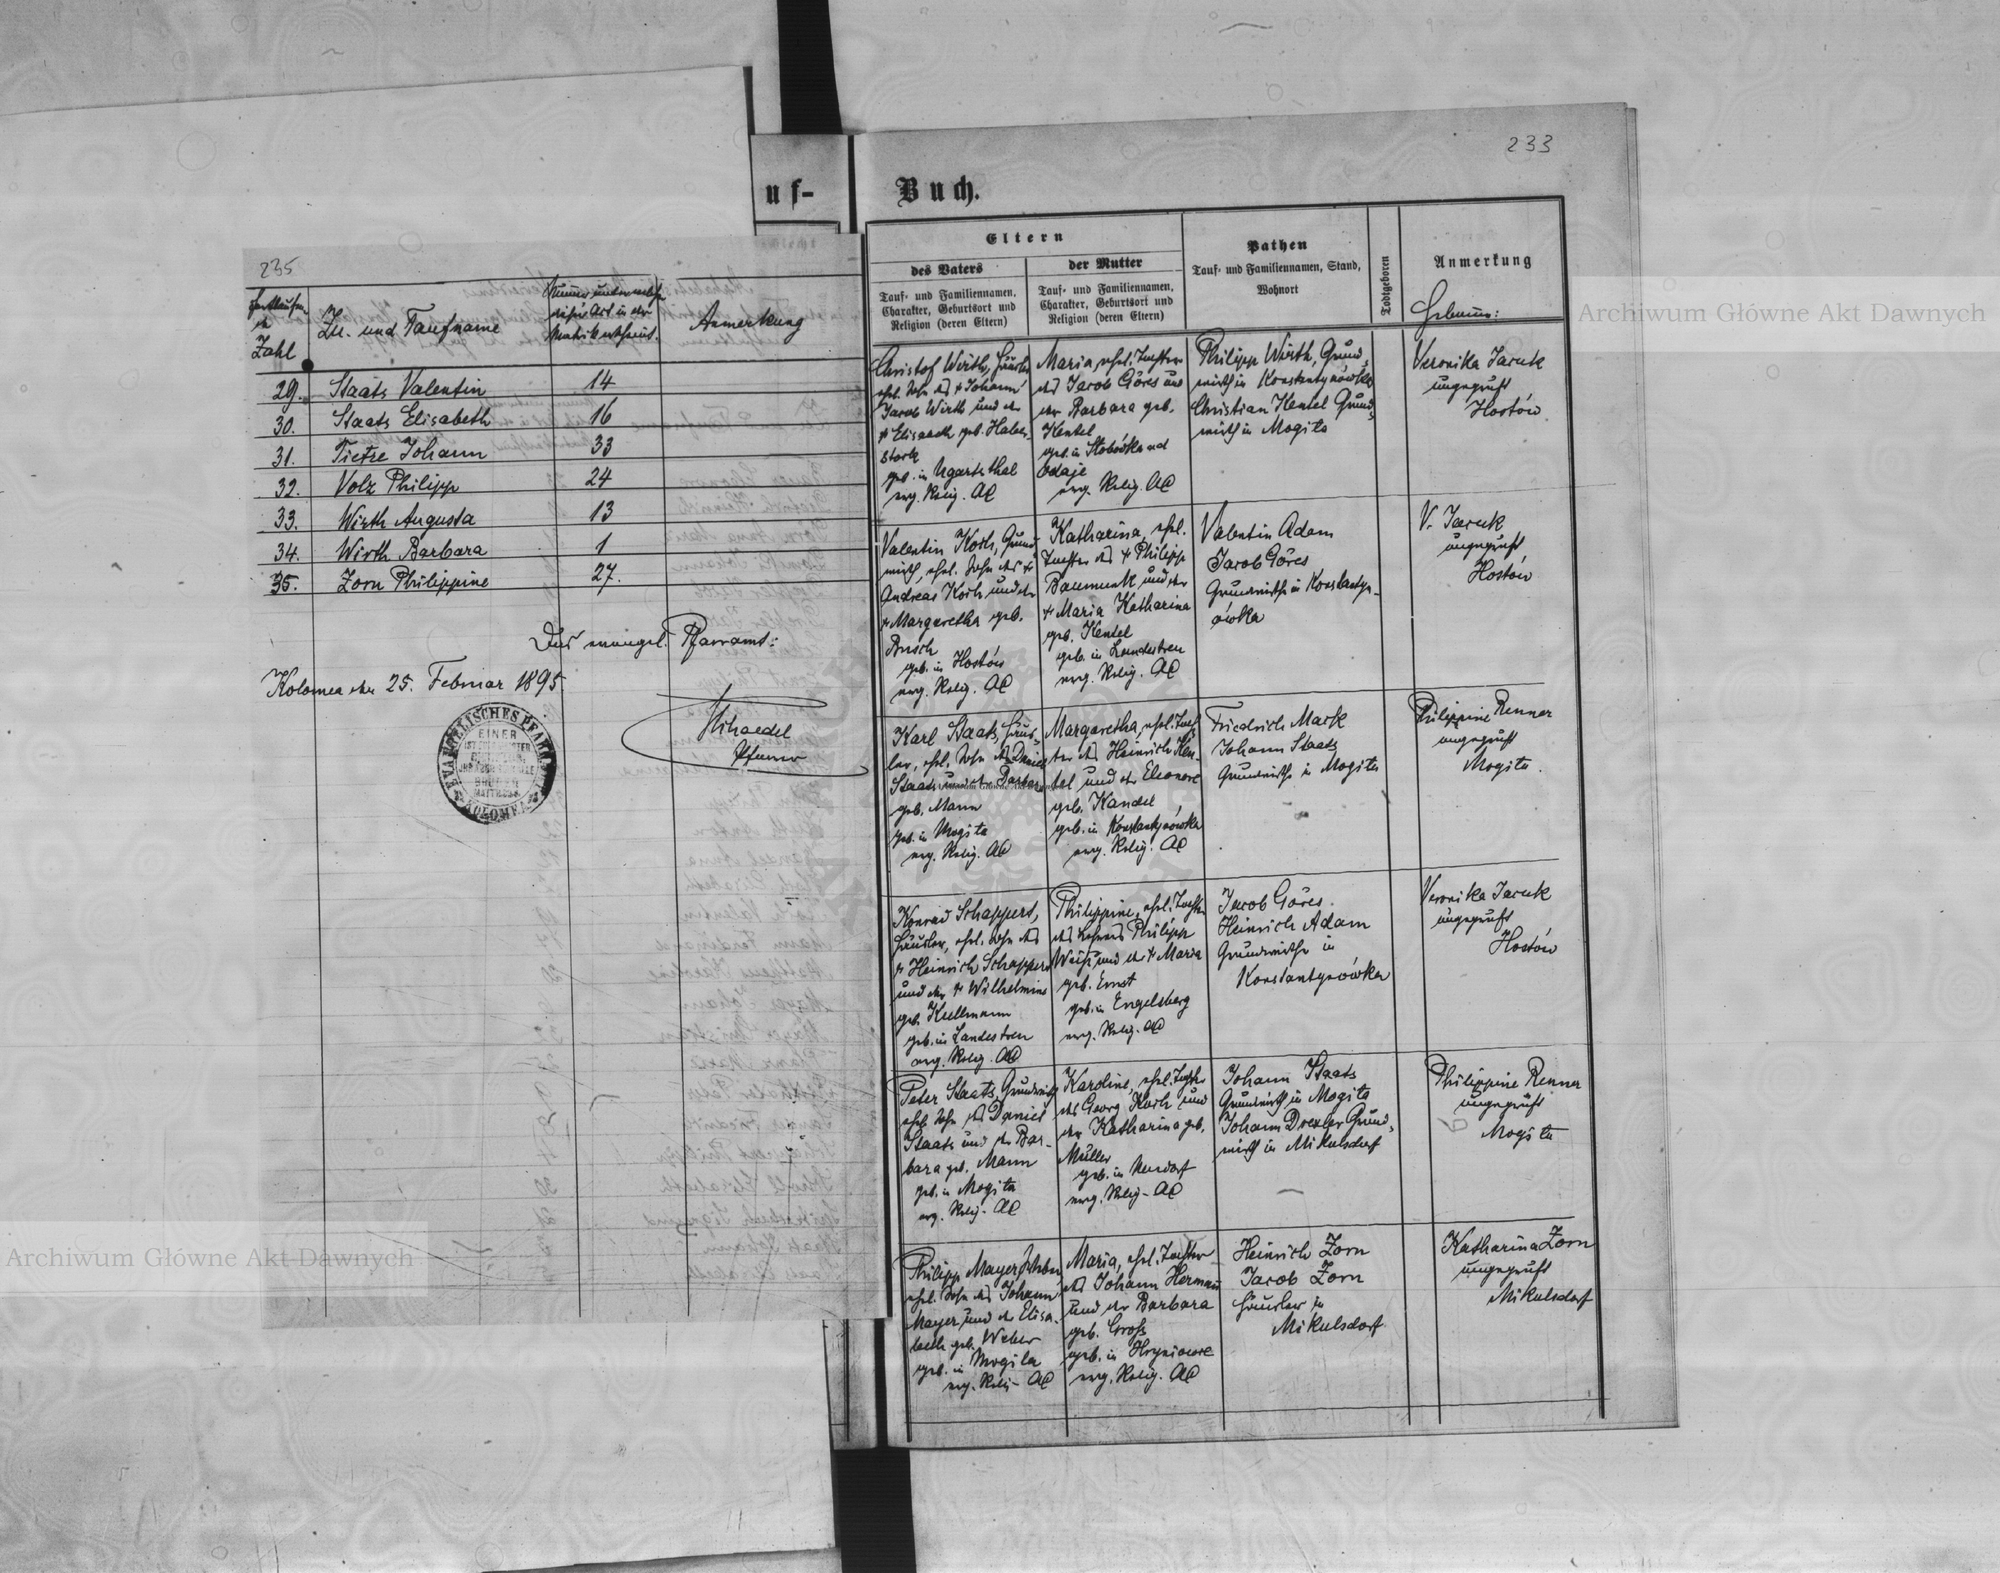 233
uf-
Buch.
235
Fortlaufende
Zahl
Zu- und Taufname
Nummer unter welcher
dieser Act in der
Matrik erscheint.
Anmerkung
29. Staats Valentin 14
30. Staats Elisabeth 16
31. Tietze Johann 33
32. Volz Philipp 24
33. Wirth Augusta 13
34. Wirth Barbara 1
35. Zorn Philippine 27.
Das evangel. Pfarramt:
Kolomea den 25. Februar 1895
Pfarrer
EVANGELISCHES PFARRAMT
KOLOMEA
EINER
Eltern
des Vaters
Tauf- und Familiennamen,
Charakter, Geburtsort und
Religion (deren Eltern)
der Mutter
Tauf- und Familiennamen,
Charakter, Geburtsort und
Religion (deren Eltern)
Pathen
Tauf- und Familiennamen, Stand,
Wohnort
Todtgeboren
Anmerkung
Hebamme:
Christof Wirth, Häusler
ehel. Sohn des † Johann
Jacob Wirth und der
† Elisabeth geb. Haber-
stock
geb. in Ugartsthal
evg. Relig. AC
Maria, ehel. Tochter
des Jacob Göres und
der Barbara geb.
Kentel
geb. in Slobódka ad
Odaje
evg. Relig. AC
Philipp Wirth, Grund-
wirth in Konstantynówka
Christian Kentel Grund-
wirth in Mogila
Veronika Jacuk
ungeprüft
Hostów
Valentin Koch, Grund-
wirth, ehel. Sohn des †
Andreas Koch und der
† Margaretha geb.
Busch
geb. in Hostów
evg. Relig. AC
Katharina, ehel.
Tochter des † Philipp
Baumunk und der
† Maria Katharina
geb. Kentel
geb. in Landestreu
evg. Relig. AC
Valentin Adam
Jacob Göres
Grundwirthe in Konstantyn-
ówka
V. Jacuk
ungeprüft
Hostów
Karl Staats, Häus-
ler, ehel. Sohn des Daniel
Staats und der Barbara
geb. Mann
geb. in Mogila
evg. Relig. AC
Margaretha, ehel. Toch-
ter des Heinrich Ken-
tel und der Eleonore
geb. Kandel
geb. in Konstantynówka
evg. Relig. AC
Friedrich Mark
Johann Staats
Grundwirthe in Mogila
Philippine Renner
ungeprüft
Mogila.
Konrad Schappert,
Häusler, ehel. Sohn des
† Heinrich Schappert
und der † Wilhelmine
geb. Kullmann
geb. in Landestreu
evg. Relig. AC
Philippine, ehel. Tochter
des Lehrers Philipp
Weiss und der † Maria
geb. Ernst
geb. in Engelsberg
evg. Relig. AC
Jacob Göres.
Heinrich Adam
Grundwirthe in
Konstantynówka
Veronika Jacuk
ungeprüft
Hostów
Peter Staats, Grundwirth
ehel. Sohn des Daniel
Staats und der Bar-
bara geb. Mann
geb. in Mogila
evg. Relig. AC
Karoline, ehel. Tochter
des Georg Koch und
der Katharina geb.
Müller
geb. in Neudorf
evg. Relig. AC
Johann Staats
Grundwirth in Mogila
Johann Drexler Grund-
wirth in Mikulsdorf
Philippine Renner
ungeprüft
Mogila
Philipp Mayer, Weber
ehel. Sohn des Johann
Mayer und der Elisa-
beth geb. Weber
geb. in Mogila
evg. Relig. AC
Maria, ehel. Tochter
des Johann Hermann
und der Barbara
geb. Gross
geb. in Hryniowce
evg. Relig. AC
Heinrich Zorn
Jacob Zorn
Häusler in
Mikulsdorf
Katharina Zorn
ungeprüft
Mikulsdorf
Archiwum Główne Akt Dawnych
Archiwum Główne Akt Dawnych